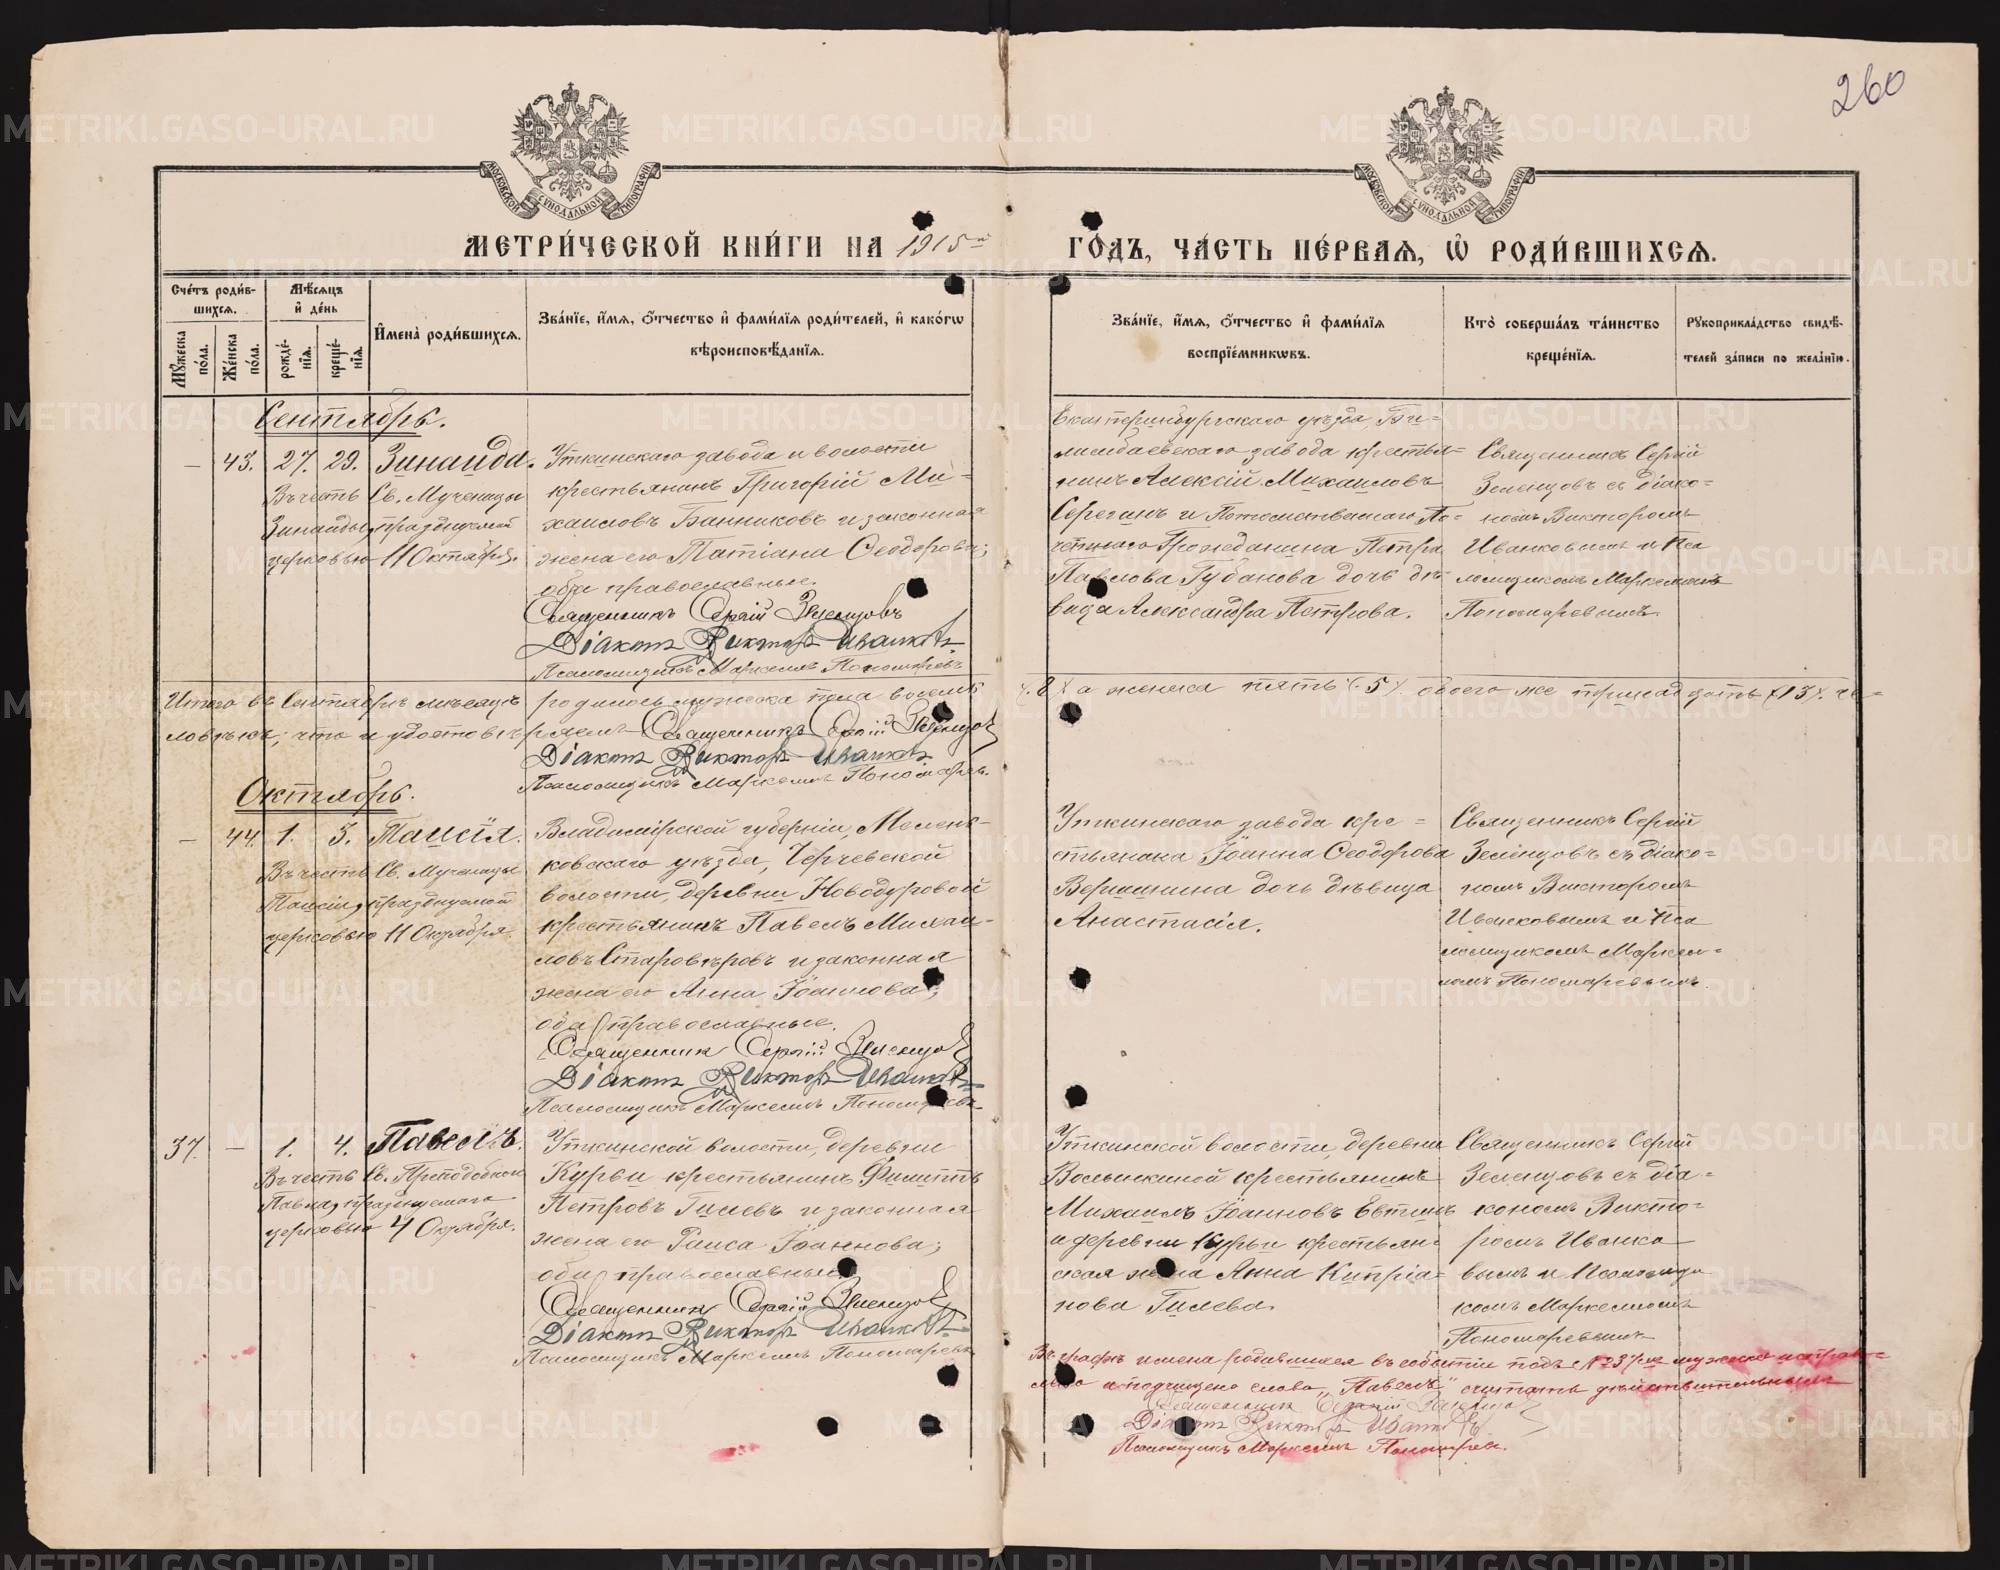 260
МОСКОВСКОЙ СѴНОДАЛЬНОЙ ТИПОГРАФІИ
МОСКОВСКОЙ СѴНОДАЛЬНОЙ ТИПОГРАФІИ
МЕТРИ́ЧЕСКОЙ КНИ́ГИ НА 1915й
ГО́ДЪ, ЧА́СТЬ ПЕ́РВАѦ, Ѡ҆ РОДИ́ВШИХСѦ.
Сче́тъ роди́в-
шихсѧ.
Мѣ́сѧцъ
и҆ де́нь
Мꙋ́жеска по́ла.
Же́нска по́ла.
рожде́-
нїѧ.
креще́-
нїѧ.
И҆мена̀ роди́вшихсѧ.
Зва́нїе, и҆́мѧ, ѻ҆́тчество и҆ фами́лїѧ роди́телей, и҆ како́гѡ
вѣроисповѣ́данїѧ.
Зва́нїе, и҆́мѧ, ѻ҆́тчество и҆ фами́лїѧ
воспрїе́мникѡвъ.
Кто̀ соверша́лъ та́инство
креще́нїѧ.
Рꙋкоприкла́дство свидѣ́-
телей за́писи по жела́нїю.
Сентябрь.
— 43. 27. 29. Зинаида.
Въ честь Св. Мученицы
Зинаиды, празднуемой
церковью 11 Октября.
Уткинскаго завода и волости
крестьянинъ Григорій Ми-
хаиловъ Банниковъ и законная
жена его Татіана Ѳеодорова;
оба православные.
Священникъ Сергій Зеленцовъ
Діаконъ Викторъ Иванковъ
Псаломщикъ Маркелъ Пономаревъ
Екатеринбургскаго уѣзда, Би-
лимбаевскаго завода крестья-
нинъ Алексій Михаиловъ
Серегинъ и Потомственнаго По-
четнаго Гражданина Петра
Павлова Губанова дочь дѣ-
вица Александра Петрова.
Священникъ Сергій
Зеленцовъ съ діако-
номъ Викторомъ
Иванковымъ и Пса
ломщикомъ Маркеломъ
Пономаревымъ.
Итого въ Сентябрѣ мѣсяцѣ родилось мужеска пола восемь (8) а женска пять (5) обоего же тринадцать (13) че-
ловѣкъ; что и удостовѣряемъ Священникъ Сергій Зеленцовъ
Діаконъ Викторъ Иванковъ
Псаломщикъ Маркелъ Пономаревъ.
Октябрь.
— 44. 1. 3. Таисія.
Въ честь Св. Мученицы
Таисіи, празднуемой
церковью 11 Октября.
Владимірской губерніи, Мелен-
ковскаго уѣзда, Черчевской
волости, деревни Новодуровой
крестьянинъ Павелъ Михаи-
ловъ Старовѣровъ и законная
жена его Анна Іоаннова;
оба православные.
Священникъ Сергій Зеленцовъ
Діаконъ Викторъ Иванковъ
Псаломщикъ Маркелъ Пономаревъ
Уткинскаго завода кре-
стьянина Іоанна Ѳеодорова
Вершинина дочь дѣвица
Анастасія.
Священникъ Сергій
Зеленцовъ съ діако-
номъ Викторомъ
Иванковымъ и Пса
ломщикомъ Маркел-
ломъ Пономаревымъ.
37. — 1. 4. Павелъ.
Въ честь Св. Преподобнаго
Павла, празднуемаго
церковью 4 Октября.
Уткинской волости, деревни
Курьи крестьянинъ Филиппъ
Петровъ Гилевъ и законная
жена его Раиса Іоаннова;
оба православные
Священникъ Сергій Зеленцовъ
Діаконъ Викторъ Иванковъ
Псаломщикъ Маркелъ Пономаревъ
Уткинской волости, деревни
Волынкиной крестьянинъ
Михаилъ Іоанновъ Евтинъ
и деревни Курьи крестьян-
ская жена Анна Кипріа-
нова Гилева.
Священникъ Сергій
Зеленцовъ съ діа-
кономъ Викто-
ромъ Иванко
вымъ и Псаломщи
комъ Маркеломъ
Пономаревымъ
Въ графѣ имена родившихся въ событіи подъ №37мъ мужска исправ-
лено и подчищено слово „Павелъ" считать дѣйствительнымъ
Священникъ Сергій Зеленцовъ
Діаконъ Викторъ Иванковъ
Псаломщикъ Маркелъ Пономаревъ.
METRIKI.GASO-URAL.RU